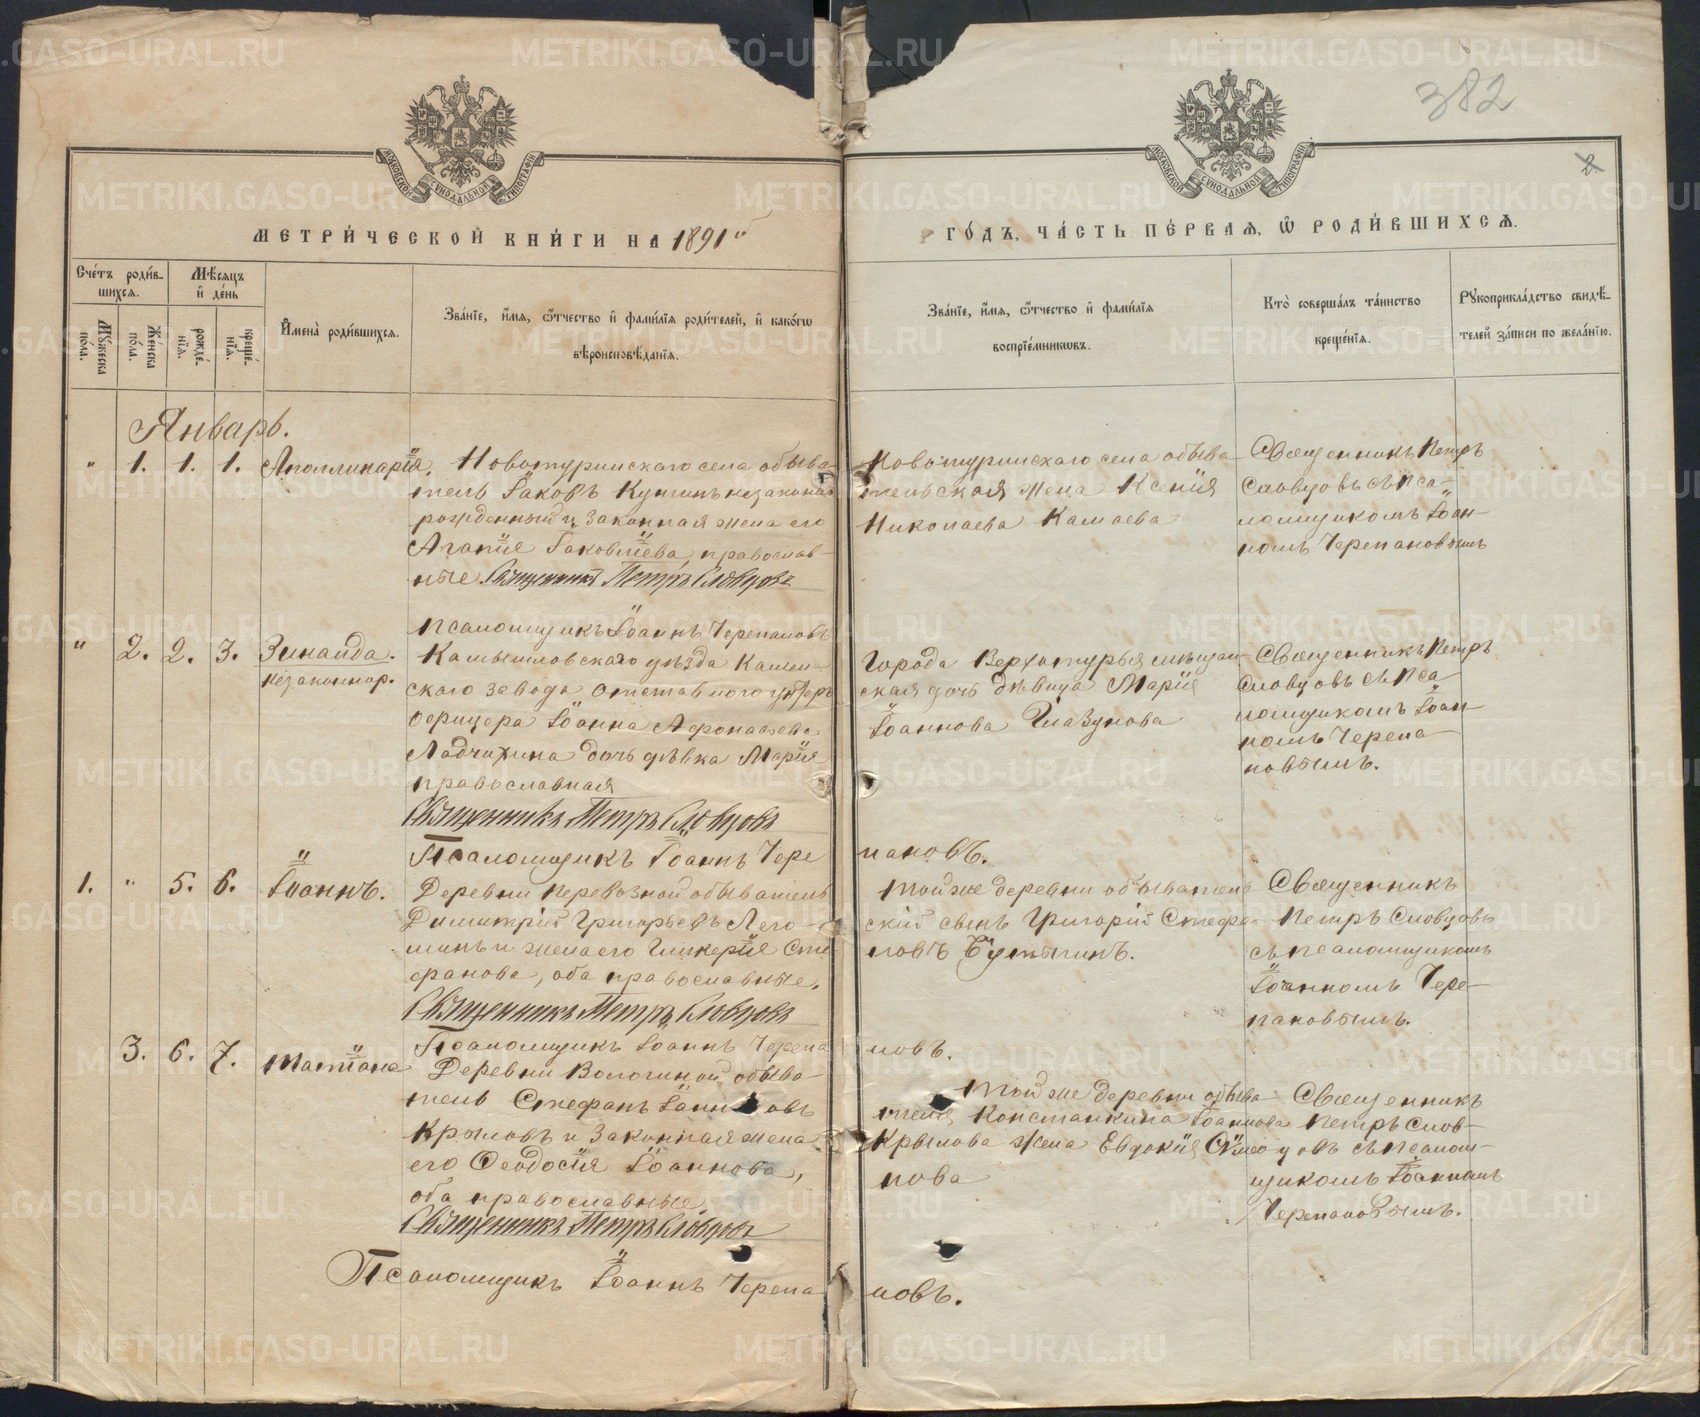 382
2
МОСКОВСКОЙ СУНОДАЛЬНОЙ ТИПОГРАФІИ
МОСКОВСКОЙ СУНОДАЛЬНОЙ ТИПОГРАФІИ
МЕТРИ́ЧЕСКОЙ КНИ́ГИ НА 1891"
ГО́ДЪ, ЧА́СТЬ ПЕ́РВАѦ, Ѽ РОДИ́ВШИХСѦ.
Сче́тъ роди́в-
шихсѧ.
Мѣ́сѧцъ
и҆ де́нь
Мꙋ́жеска
по́ла.
Же́нска
по́ла.
рожде́-
нїѧ.
креще́-
нїѧ.
И҆мена̀ роди́вшихсѧ.
Зва́нїе, и҆́мѧ, ѻ҆́тчество и҆ фами́лїѧ роди́телей, и҆ како́гѡ
вѣроисповѣ́данїѧ.
Зва́нїе, и҆́мѧ, ѻ҆́тчество и҆ фами́лїѧ
воспрїе́мникѡвъ.
Кто̀ соверша́лъ та́инство
креще́нїѧ.
Рꙋкоприкла́дство свидѣ́-
телей за́писи по жела́нїю.
Январь.
" 1. 1. 1. Аполлинарія.
Новотуринскаго села обыва-
тель Іаковъ Кунгинъ незаконно
рожденный и законная жена его
Агапіе Іаковлева православ-
ные Священникъ Петръ Словцовъ
Новотуринскаго села обыва-
тельская жена Ксенія
Николаева Камаева
Священникъ Петръ
Словцовъ съ пса-
ломщикомъ Іоан-
номъ Черепановымъ
Псаломщикъ Іоаннъ Черепановъ
" 2. 2. 3. Зинаида.
незаконнор.
Камышловскаго уѣзда Камен-
скаго завода отставного унтеръ
офицера Іоанна Афонасьева
Ладчихина дочь дѣвка Марія
православная
Священникъ Петръ Словцовъ
Города Верхотурья мѣщан-
ская дочь дѣвица Марія
Іоаннова Глазунова
Священникъ Петръ
Словцовъ съ пса
ломщикомъ Іоан
номъ Черепа-
новымъ.
Псаломщикъ Іоаннъ Чере
пановъ.
1. " 5. 6. Іоаннъ.
Деревни Перевозной обыватель
Димитрій Григорьевъ Лего-
тинъ и жена его Гликерія Сте
фанова, оба православные.
Священникъ Петръ Словцовъ
Той же деревни обыватель
скій сынъ Григорій Стефа-
новъ Бутыгинъ.
Священникъ
Петръ Словцовъ
съ псаломщикомъ
Іоанномъ Чере-
пановымъ.
Псаломщикъ Іоаннъ Черепа
новъ.
3. 6. 7. Татіана
Деревни Вологиной обыва-
тель Стефанъ Іоанновъ
Крыловъ и законная жена
его Ѳеодосія Іоаннова,
оба православные
Священникъ Петръ Словцовъ
Той же деревни обыва-
теля Константина Іоаннова
Крылова жена Евдокія Симео
нова
Священникъ
Петръ Слов-
цовъ съ псалом-
щикомъ Іоанномъ
Черепановымъ.
Псаломщикъ Іоаннъ Черепа
новъ.